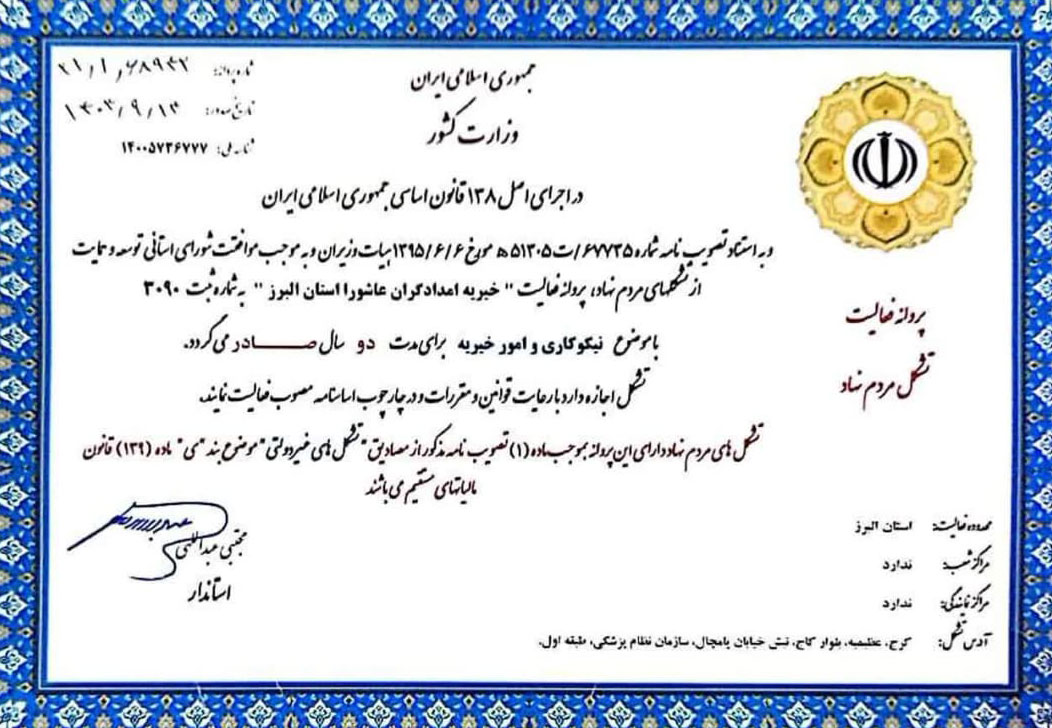 جمهوری اسلامی ایران
وزارت کشور
شماره پروانه: ۲۱/۱/۶۸۹۴۲
تاریخ صدور: ۱۴۰۳/۹/۱۳
شناسه ملی: ۱۴۰۰۵۷۳۶۷۷۷
در اجرای اصل ۱۳۸ قانون اساسی جمهوری اسلامی ایران
و به استناد تصویب نامه شماره ۶۷۷۳۵/ت۵۱۳۰۵ه مورخ ۱۳۹۵/۶/۶ هیات وزیران و به موجب موافقت شورای استانی توسعه و حمایت
از تشکلهای مردم نهاد، پروانه فعالیت " خیریه امدادگران عاشورا استان البرز " به شماره ثبت ۳۰۹۰
با موضوع نیکوکاری و امور خیریه برای مدت دو سال صـــــادر می گردد.
تشکل اجازه دارد با رعایت قوانین و مقررات و در چارچوب اساسنامه مصوب فعالیت نمایند.
تشکل های مردم نهاد دارای این پروانه بموجب ماده (۱) تصویب نامه مذکور از مصادیق "تشکل های غیردولتی" موضوع بند "ی" ماده (۱۳۹) قانون
مالیاتهای مستقیم می باشند
پروانه فعالیت
تشکل مردم نهاد
مجتبی عبداللهی
استاندار
محدوده فعالیت: استان البرز
مراکز شعب: ندارد
مراکز نمایندگی: ندارد
آدرس تشکل: کرج، عظیمیه، بلوار کاج، نبش خیابان پامچال، سازمان نظام پزشکی، طبقه اول.